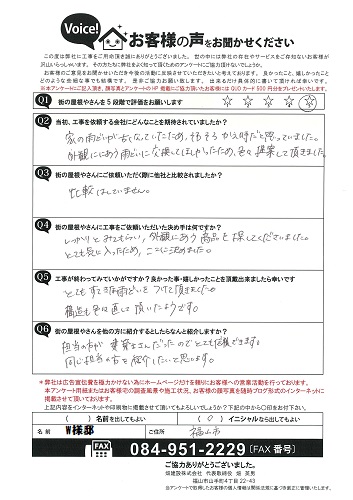 Voice!
お客様の声をお聞かせください
この度は弊社の工事をご用命頂き誠にありがとうございました。
Q1 街の屋根やさんを5段階で評価をお願いします
☆ ☆ ☆ ☆ ☆
Q2 当初、工事を依頼する会社にどんなことを期待されていましたか?
家の雨どいが古くなっていたため、そろそろかえ時だと思っていました。
外観にあう雨どいに交換してほしかったため、色々提案して頂きました。
Q3 街の屋根やさんにご依頼いただく際に他社と比較されましたか?
比較はしていません。
Q4 街の屋根やさんに工事をご依頼いただいた決め手は何ですか?
しっかりとみてもらい、外観にあう商品を探してくださいました。
とても気に入ったため、ここに決めました。
Q5 工事が終わってみていかがですか?良かった事・嬉しかったことを頂戴出来ましたら幸いです
とてもすてきな雨どいをつけて頂きました。
構造も色々直して頂いたようです。
Q6 街の屋根やさんを他の方に紹介するとしたらなんと紹介しますか?
担当の方が
同じ担当の方を紹介したいと思います。
*弊社は広告宣伝費を極力かけない為にホームページだけを頼りにお客様への営業活動を行っております。
本アンケート用紙またはお客様宅の調査風景や施工状況、お客様の顔写真を随時ブログ形式のインターネットに
掲載させて頂いております。
上記内容をインターネットや印刷物に掲載させて頂いてもよろしいでしょうか?下記の中から〇印をお付下さい。
( )名前を出してもよい (〇)イニシャルなら出してもよい
名前 W様邸 ご住所 福山市
FAX 084-951-2229 [FAX番号]
ご協力ありがとうございました。
畑建設株式会社 代表取締役 畑 英男
福山市山手町4丁目22-43
※アンケートで取得したお客様の個人情報は関係法規に基づき適正に管理いたします。